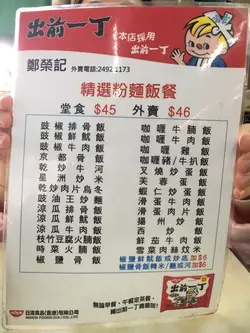 出前一丁
本店採用
出前一丁
鄭榮記 外賣電話:2492 1173
精選粉麵飯餐
堂食 $45 外賣 $46
豉椒排骨飯
豉椒鮮魷飯
豉椒牛肉飯
京都骨飯
乾炒牛河
星洲炒米
乾炒肉片烏冬
豉油王炒麵
涼瓜排骨飯
涼瓜鮮魷飯
涼瓜牛肉飯
枝竹豆腐火腩飯
時菜火腩飯
咖喱牛腩飯
咖喱牛肉飯
咖喱雞飯
咖喱豬/牛扒飯
叉燒炒蛋飯
芙蓉蛋飯
蝦仁炒蛋飯
滑蛋牛肉飯
揚州炒飯
西炒飯
鮮茄牛肉飯
雪菜肉絲炆米
椒鹽鮮魷飯或炒底加$6
椒鹽骨飯轉米/麵或河加$6
日清食品(香港)有限公司
NISSIN FOODS (H.K.) CO., LTD.
無論早餐、午餐定茶餐,
轉出前一丁實最啱!
出前一丁